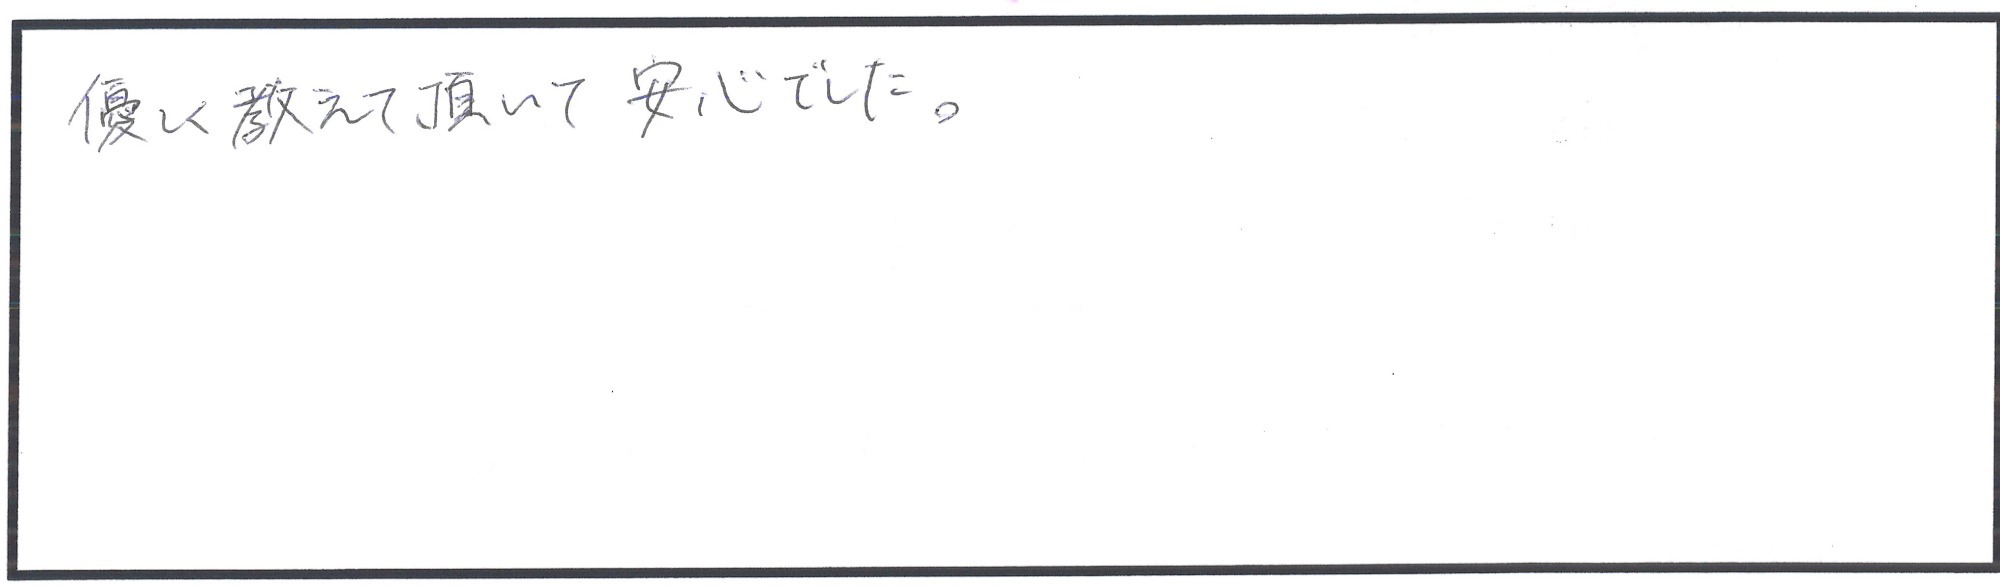 優しく教えて頂いて安心でした。